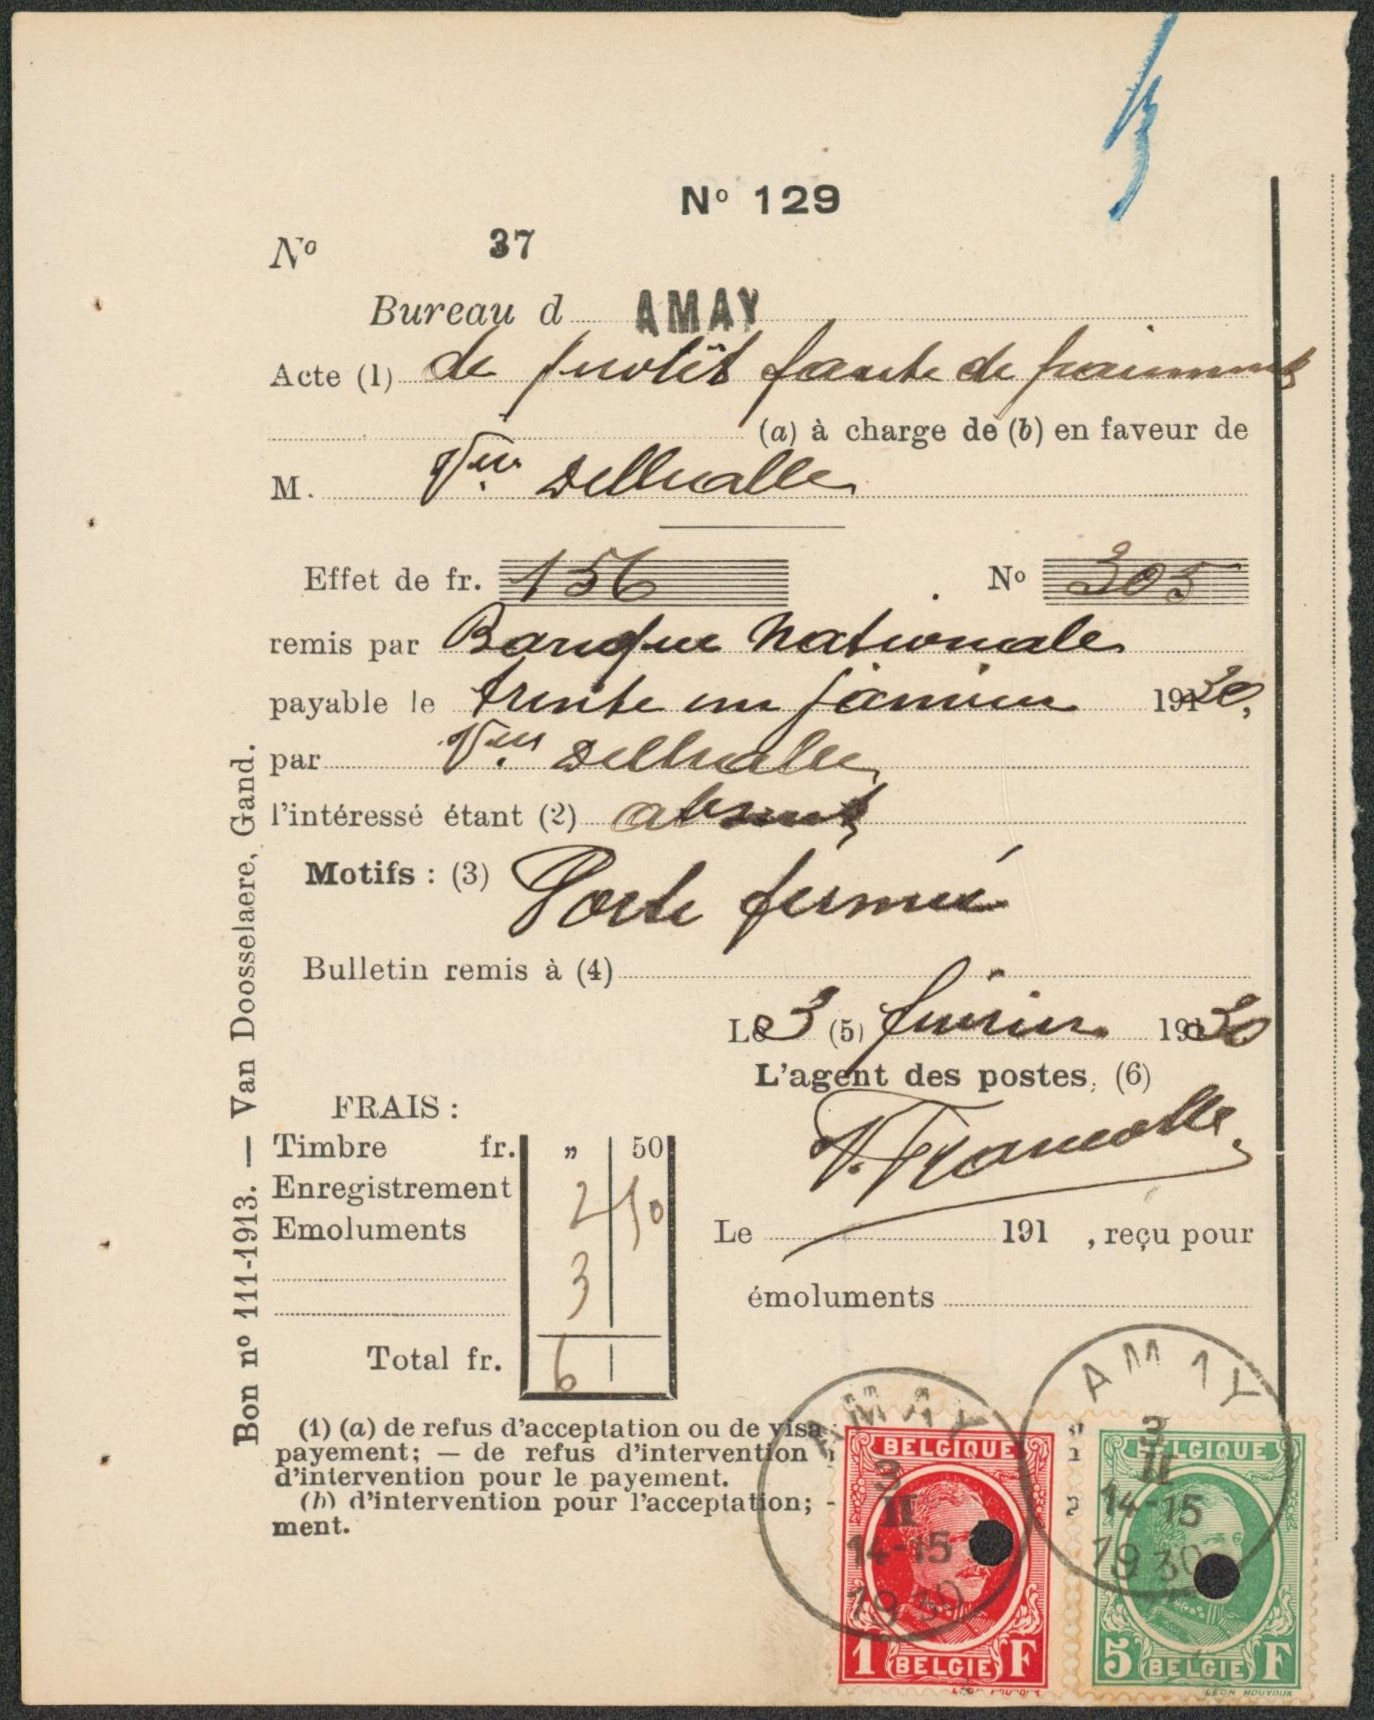 No 129
No 37
Bureau d AMAY
Acte (1) de protêt faute de paiement
(a) à charge de (b) en faveur de
M. Vve Delhalle
Effet de fr. 156 No 305
remis par Banque Nationale
payable le trente un janvier 191 30,
par Vve Delhalle
l'intéressé étant (2) absent
Motifs : (3) Porte fermée
Bulletin remis à (4)
Le 3 (5) février 191 30
L'agent des postes, (6)
FRAIS :
Timbre fr. „ 50
Enregistrement 2 50
Emoluments 3
Total fr. 6
Le 191 , reçu pour
émoluments
(1) (a) de refus d'acceptation ou de visa
payement; — de refus d'intervention
d'intervention pour le payement.
(b) d'intervention pour l'acceptation; -
ment.
Bon no 111-1913. — Van Doosselaere, Gand.
AMAY
3
II
14-15
1930
AMAY
3
II
14-15
1930
BELGIQUE
1 BELGIE F
BELGIQUE
5 BELGIE F